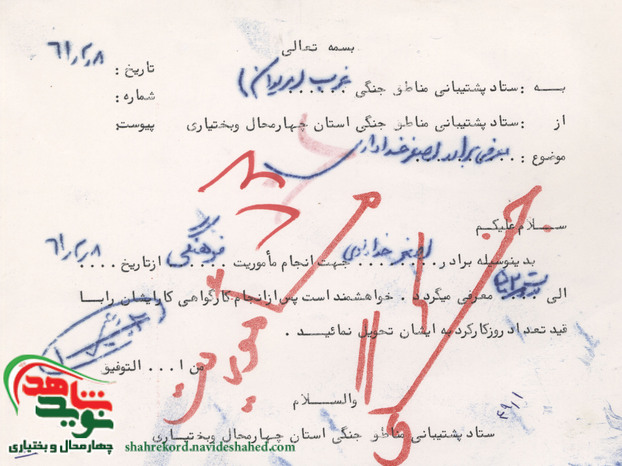 بسمه تعالی
تاریخ : ۶۱/۲/۸
بـــه : ستاد پشتیبانی مناطق جنگی غرب (مریوان)
شماره :
از : ستاد پشتیبانی مناطق جنگی استان چهارمحال وبختیاری
پیوست:
موضوع : معرفی برادر اصغر خدادادی
ســلام علیکــم
بدینوسیله برادر اصغر خدادادی جهت انجام مأموریت فرهنگی ازتاریخ ۶۱/۲/۸
الی معرفی میگردد . خواهشمند است پس از انجام کارگواهی کارایشان رابـا
قید تعداد روزکارکرد به ایشان تحویل نمائیـــد .
من ا ... التوفیق
والســـلام
ستاد پشتیبانی مناطق جنگی استان چهارمحال وبختیـــاری
نوید شاهد
چهارمحال و بختیاری
shahrekord.navideshahed.com